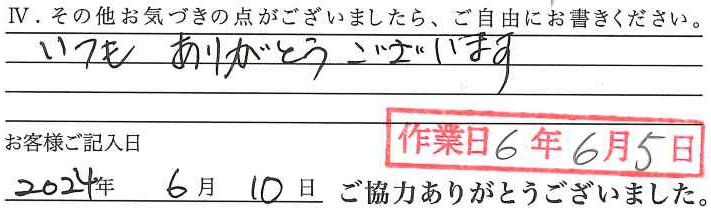 Ⅳ．その他お気づきの点がございましたら、ご自由にお書きください。
いつも ありがとうございます
作業日6年6月5日
お客様ご記入日
2024年 6月 10日 ご協力ありがとうございました。